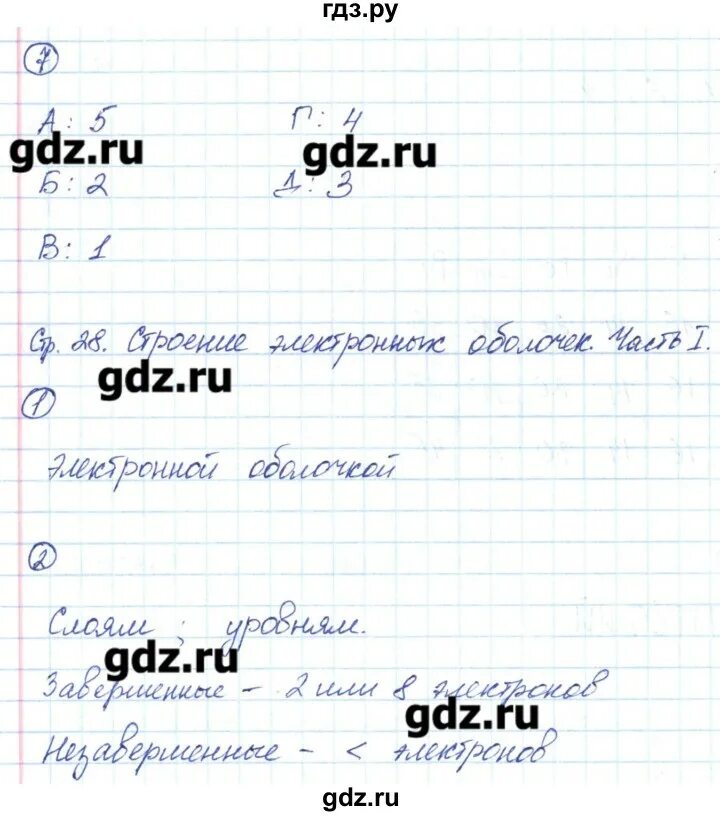 гдз.ру
7
А: 5 Г: 4
gdz.ru gdz.ru
Б: 2 Д: 3
В: 1
Стр. 28. Строение электронных оболочек. Часть I.
gdz.ru
1
Электронной оболочкой
2
Слоям ; уровням.
gdz.ru
Завершенные - 2 или 8 электронов
gdz.ru
Незавершенные - < электронов
gdz.ru